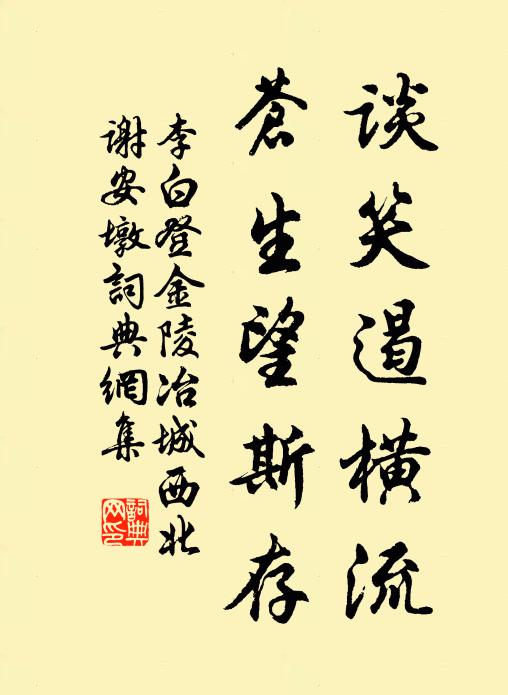 谈笑遏横流
蒼生望斯存
李白登金陵冶城西北
谢安墩詞典網集
詞典网印